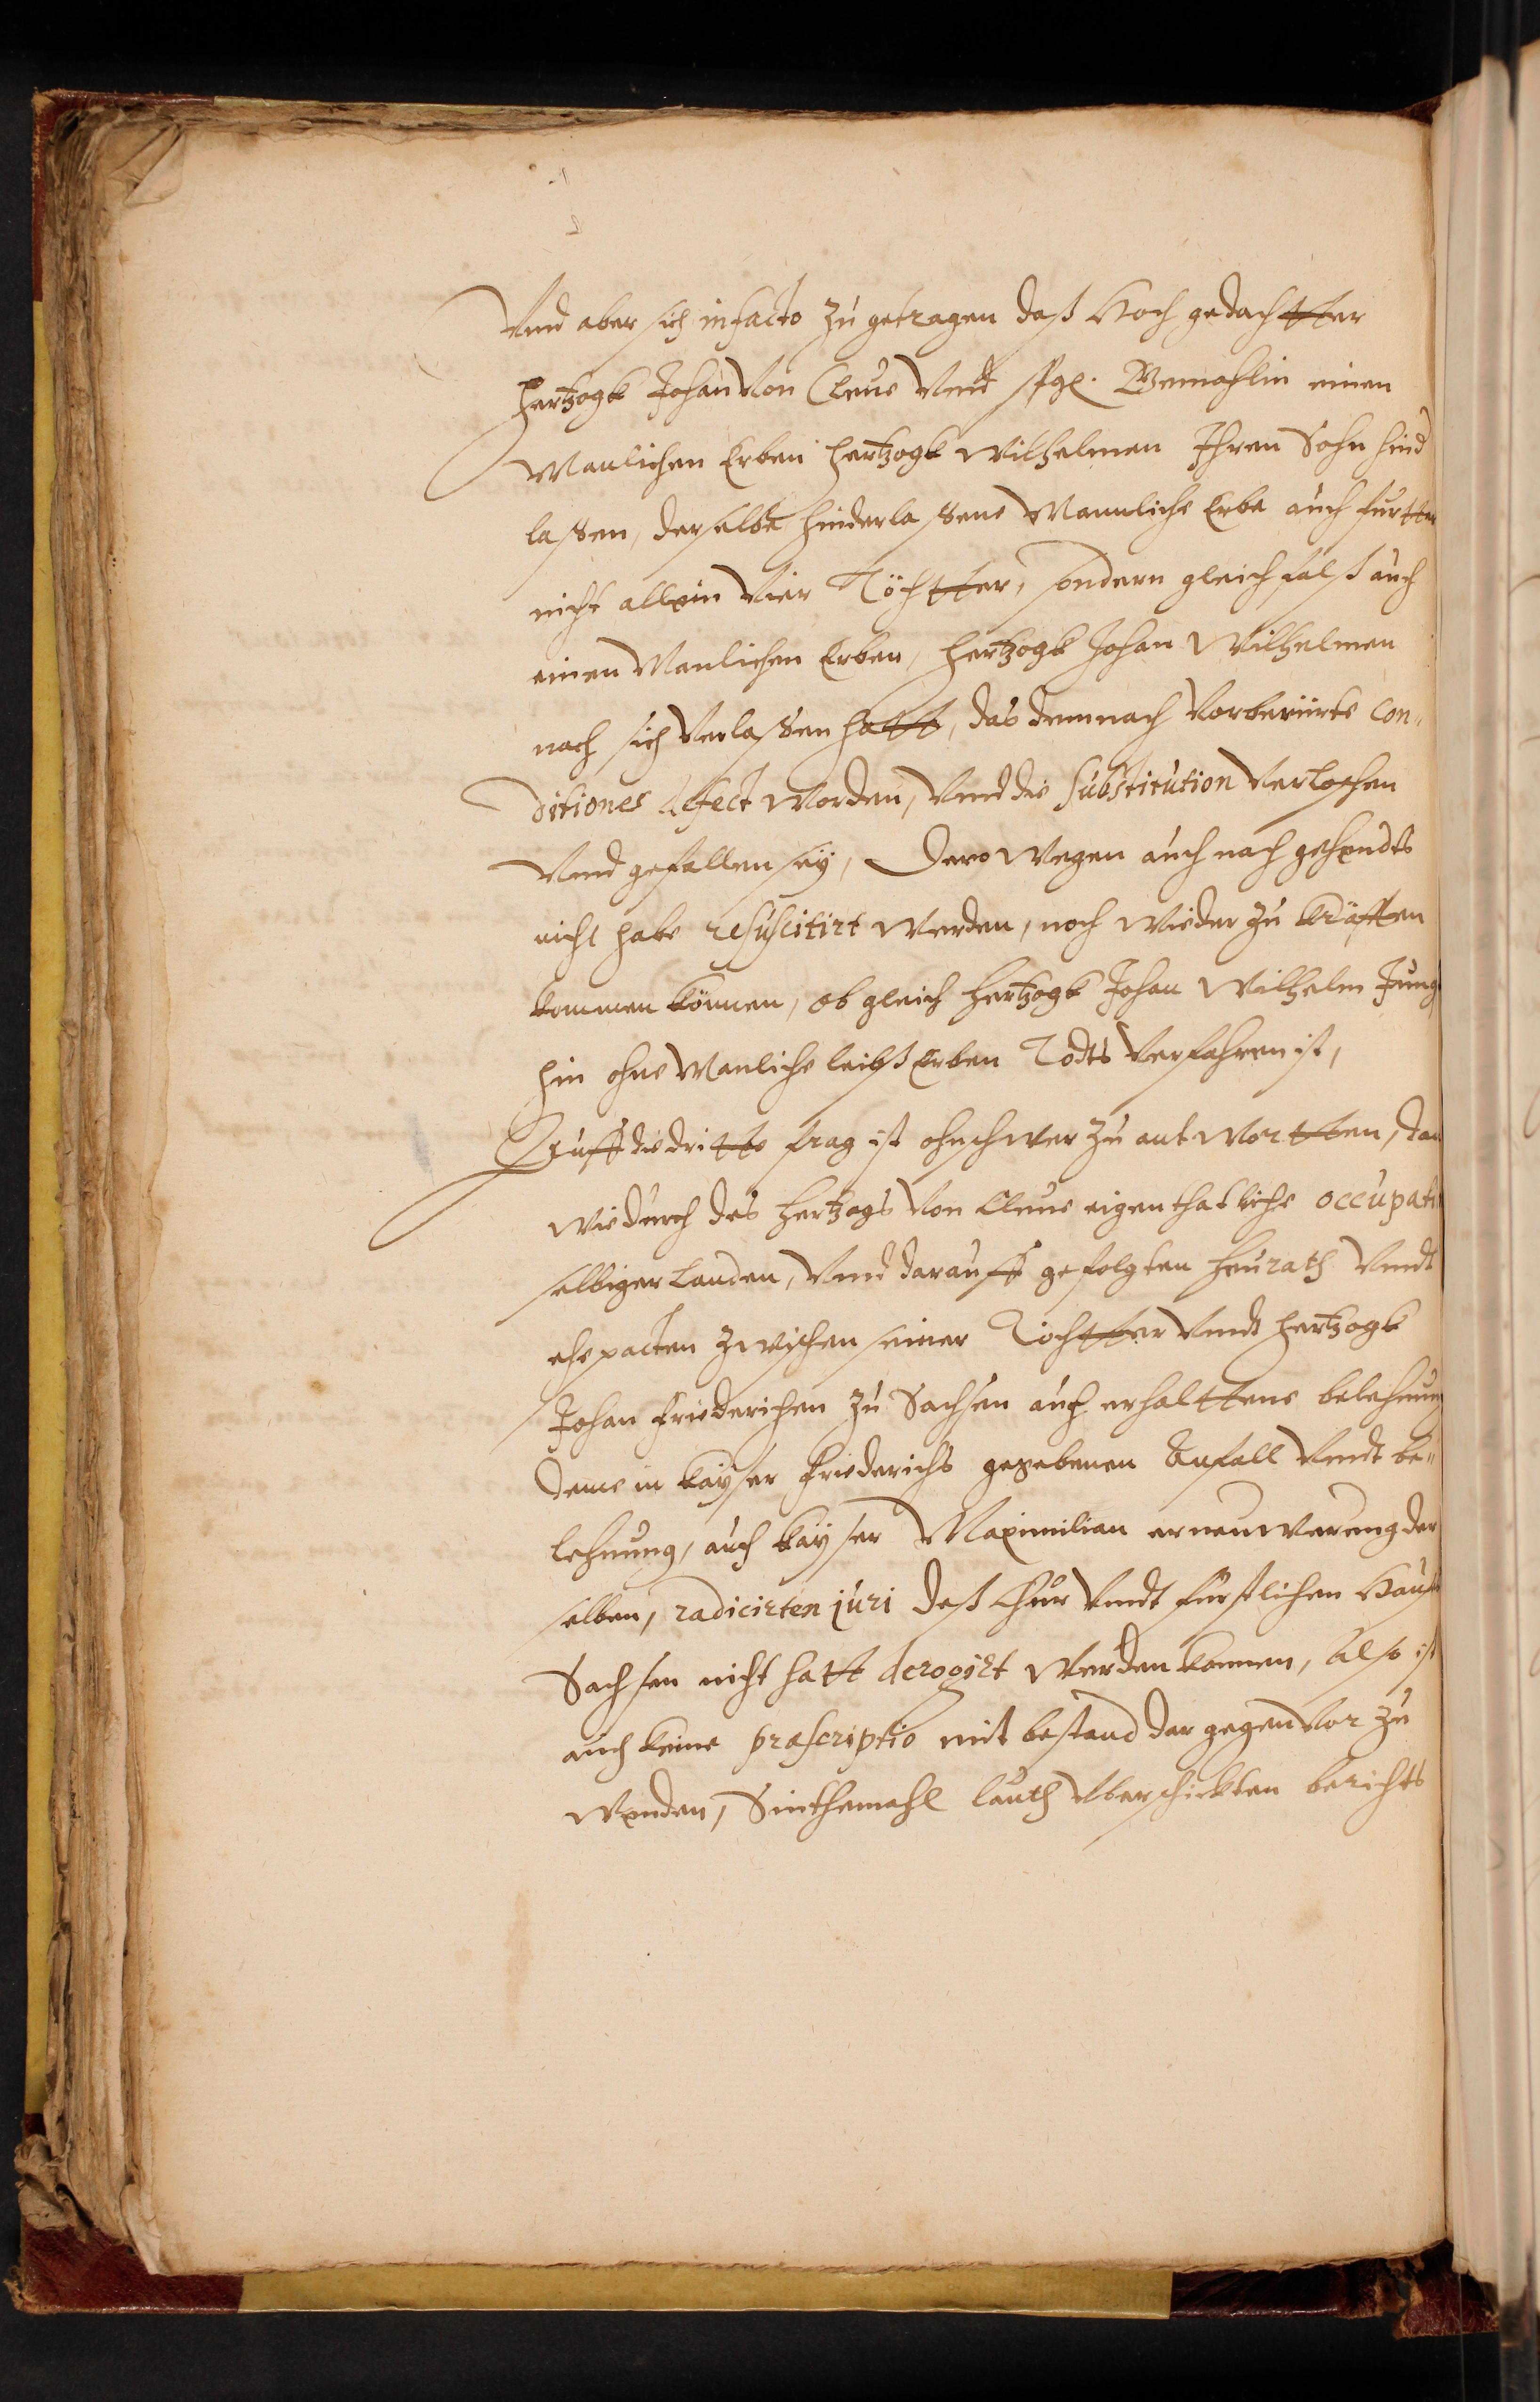 Vnd aber sich in facto zu getragen daß Hoch gedachtter
Hertzogk Johan Von Cleue Vnd Gemahlin einen
Manlichen Erben Hertzogk Wilhelmen Ihren Sohn hind
laßen, derselbe hinderlaßene Mannliche Erbe auch furtter
nicht allein Vier Töchtter, sondern gleichfalß auch
einen Manlichen Erben, Hertzogk Johan Wilhelmen
nach sich Verlaßen hatt, das demnach Vorberürte con„
ditiones defect Worden, Vnd die substitution Verloschen
Vnd gefallen sey, Dero Wegen auch nach gehendts
nicht habe resuscitirt Werden, noch Wieder zu kräfften
kommen können, ob gleich Hertzogk Johan Wilhelm Jung
hin ohne Manliche leibß Erben Todts Verfahren ist,
Auff die dritte frag ist ohnschwer zu antwortten, dan
Wie durch des Hertzogs Von Cleue eigenthatliche occupati
selbiger Landen, Vnd darauff gefolgten Heurath Vndt
ehepacten zwischen seiner Tochtter Vndt Hertzogk
Johan Friderichen zu Sachsen auch erhalttene belehnung
deme in Kayser Friederichs gegebenen Anfall Vndt be„
lehnung, auch Kayser Maximilian erneuwerung der
selben, radicirten juri deß Chur Vndt fürstlichen Hauß
Sachsen nicht hatt derogirt Werden konnen, Also ist
auch keine præscriptio mit bestand dar gegen Vor zu
Wenden, Sinthemahl lauth Vberschickten berichts